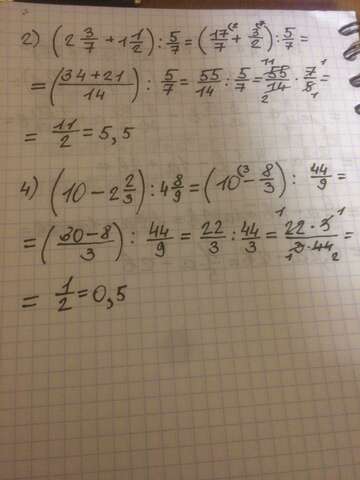 2) (2 3/7 + 1 1/2) : 5/7 = (17/7 (2 + 3/2 (7) : 5/7 =
= (34+21/14) : 5/7 = 55/14 : 5/7 = 11 55/14 2 · 7 1/5 1 =
= 11/2 = 5,5
4) (10 - 2 2/3) : 4 8/9 = (10 (3 - 8/3) : 44/9 =
= (30-8/3) : 44/9 = 22/3 : 44/3 = 1 22 · 3 1/1 3 · 44 2 =
= 1/2 = 0,5